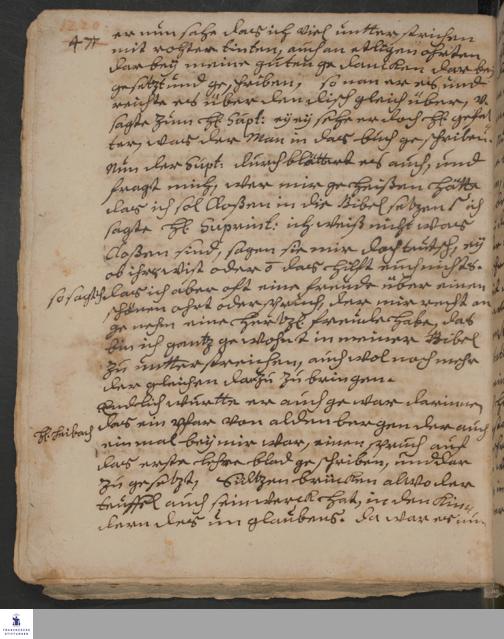 1220
47
er nun sahe das ich viel untter strichen
mit rohter tinten, auch an etligen ohrten
dar bey meine guten gedancken dar bey
gesetzt und geschriben, so nam er es und
reichte es über den disch gleich über, v
sagte zum H. Supt: ey ey sehe er doch H. gefat
ter, was der Man in das buch geschriben.
Nun der Supt. durch blättert es auch, und
fragt mich, wer mir geheißen hätte
das ich sol Closßen in die Bibel setzen? ich
sagte H. Suprint: ich weiß nicht was
Closßen sind, sagen sie mir doch teutsch, ey
ob ihrs wist oder das hilfft euch nichts.
so sagt ich das ich aber oft eine freude über einen
schönen ohrt oder spruch, der mir recht an
genehm eine hertzl. freude habe, das
bin ich gantz gewohnt in meiner Bibel
zu untterstreichen, auch wol noch mehr
der gleichen darzu zu bringen.
Endlich wurtte er auch gewar darinnen
das ein pfar von aldenbergen der auch
H. Seibach
ein mal bey mir war, einen spruch auf
das erste lehre blad geschriben, und dar
zu gesetzt, Sultzenbrücken alwo der
teuffel auch sein werck hat, in den Kin
dern des unglaubens. da war es nun
FRANCKESCHE STIFTUNGEN